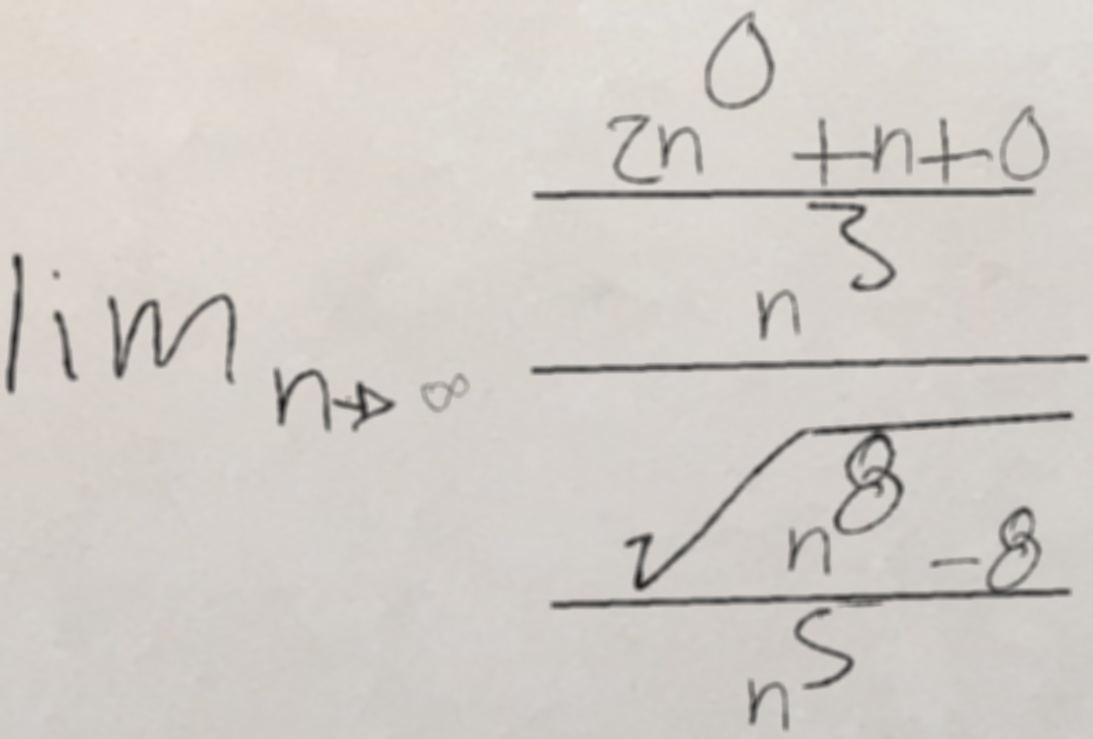 \lim_{n \to \infty} \frac{\frac{2n^0+n+0}{n^3}}{\frac{\sqrt{n^8-8}}{n^5}}